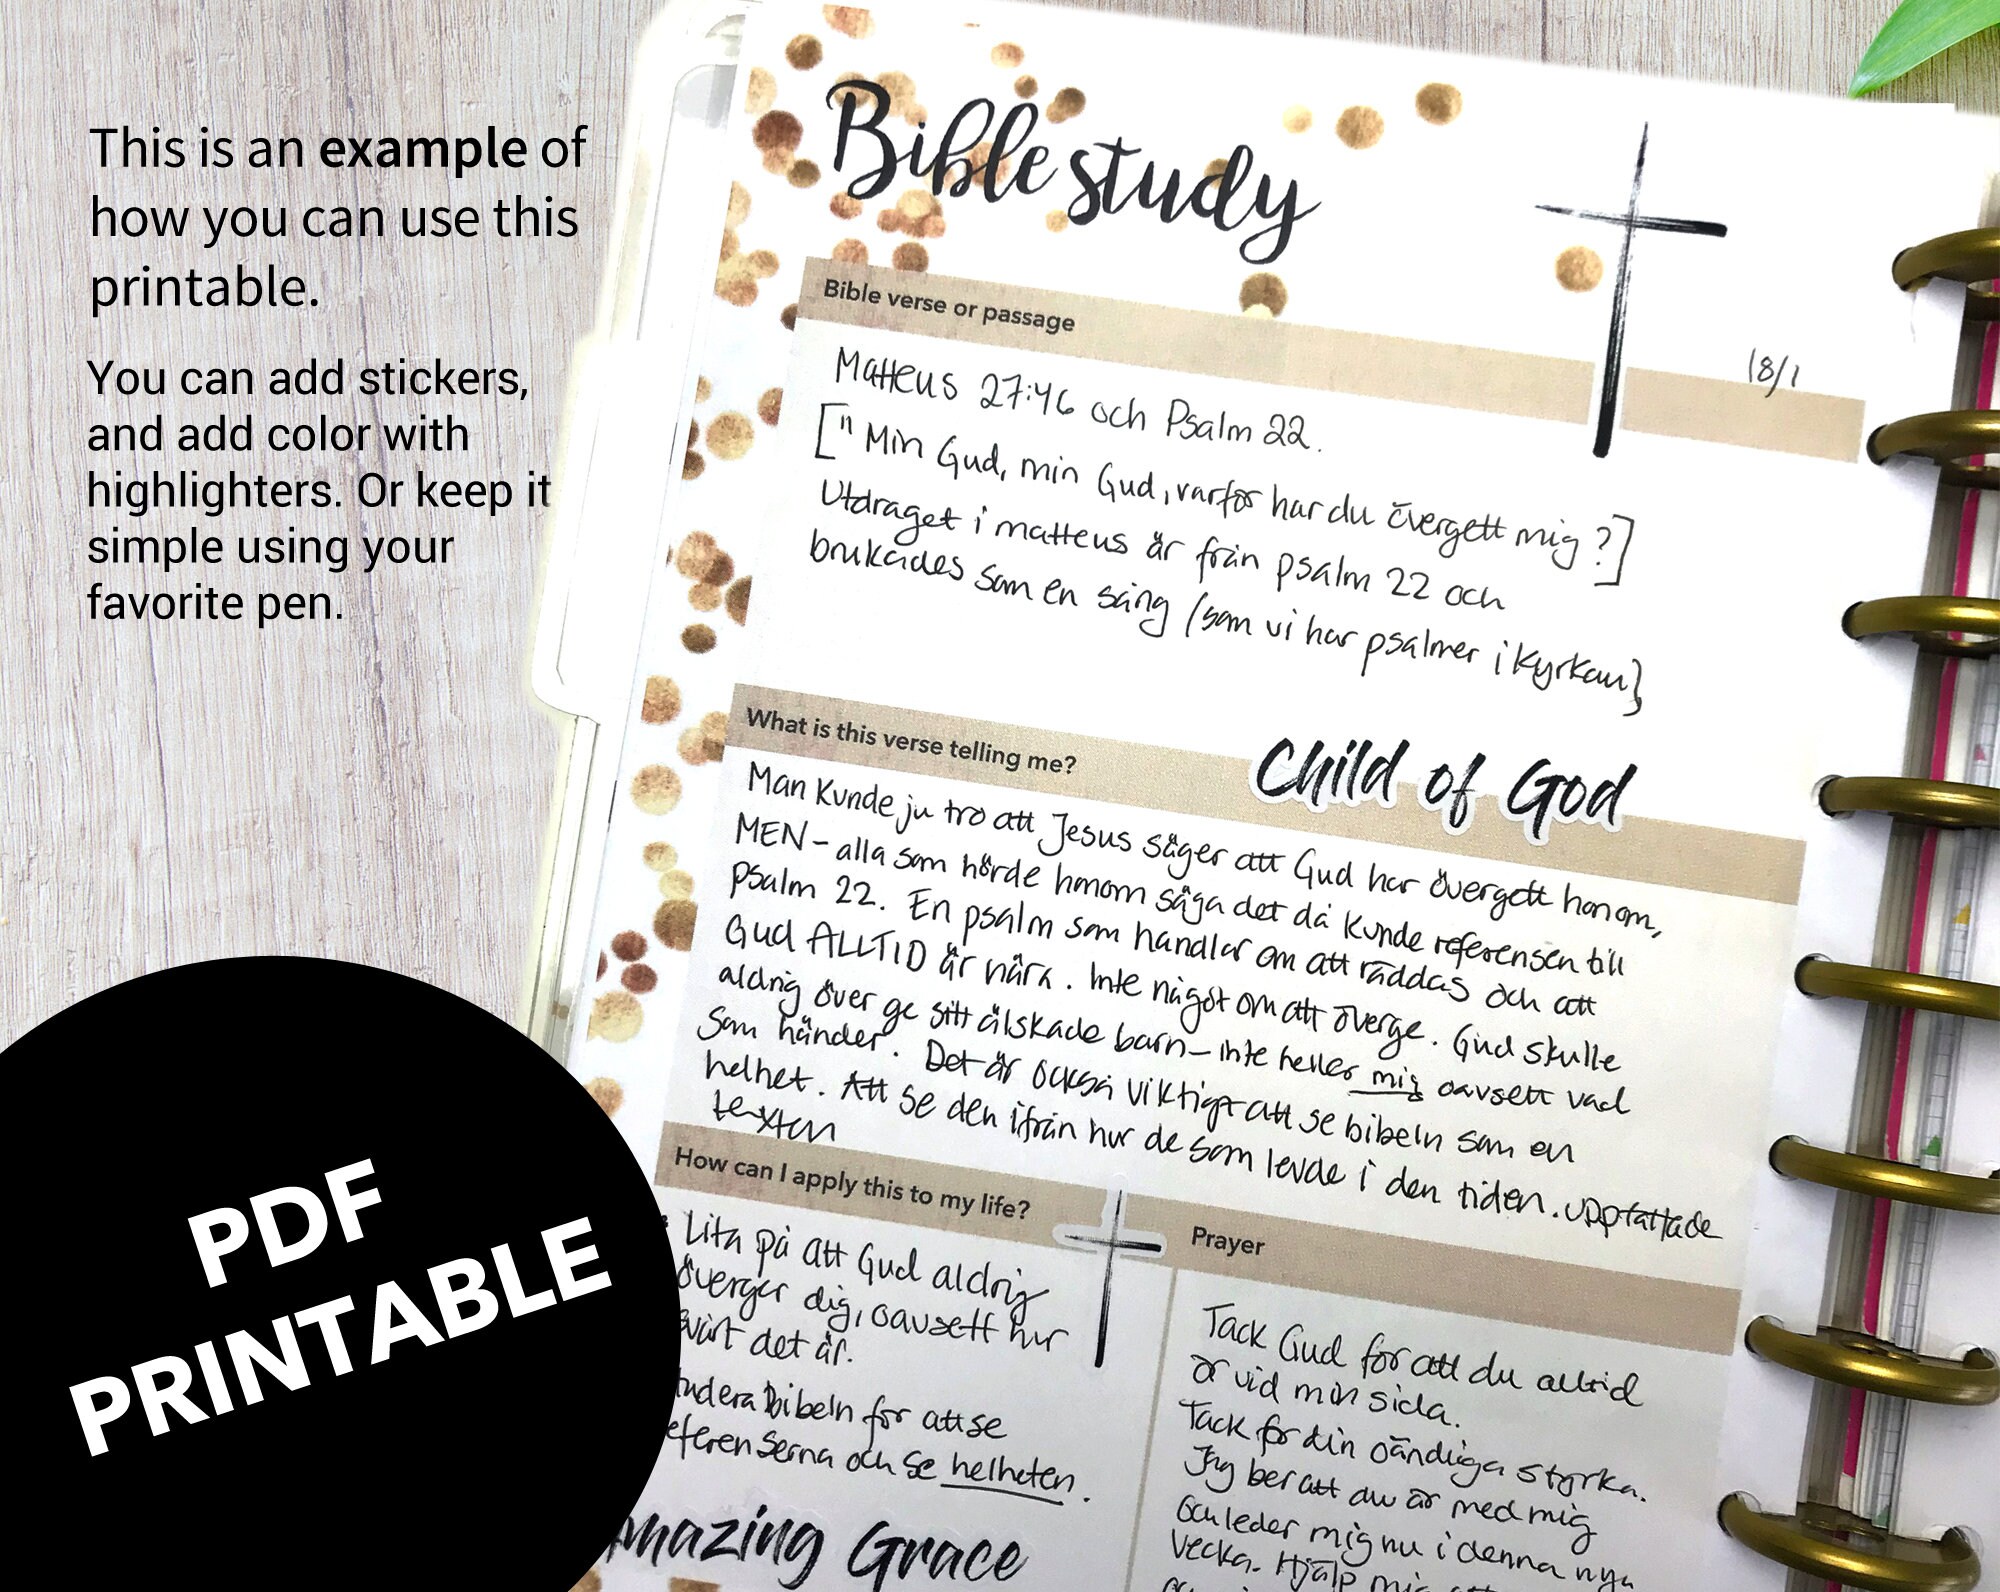 This is an example of
how you can use this
printable.
You can add stickers,
and add color with
highlighters. Or keep it
simple using your
favorite pen.
PDF
PRINTABLE
Bible study
Bible verse or passage
18/1
Matteus 27:46 och Psalm 22.
["Min Gud, min Gud, varför har du övergett mig?]
Utdraget i matteus är från psalm 22 och
brukades som en sång (som vi har psalmer i kyrkan)
What is this verse telling me?
Child of God
Man kunde ju tro att Jesus säger att Gud har övergett honom,
MEN - alla som hörde honom säga det då kunde referensen till
psalm 22. En psalm som handlar om att räddas och att
Gud ALLTID är nära. Inte något om att överge. Gud skulle
aldrig över ge sitt älskade barn - inte heller mig oavsett vad
som händer. Det är också viktigt att se bibeln som en
helhet. Att se den ifrån hur de som levde i den tiden. uppfattade
texten
How can I apply this to my life?
Lita på att Gud aldrig
överger dig, oavsett hur
svårt det är.
tudera bibeln för att se
eferenserna och se helheten.
Amazing Grace
Prayer
Tack Gud för att du alltid
är vid min sida.
Tack för din oändliga styrka.
Jag ber att du är med mig
och leder mig nu i denna nya
vecka. Hjälp mig att